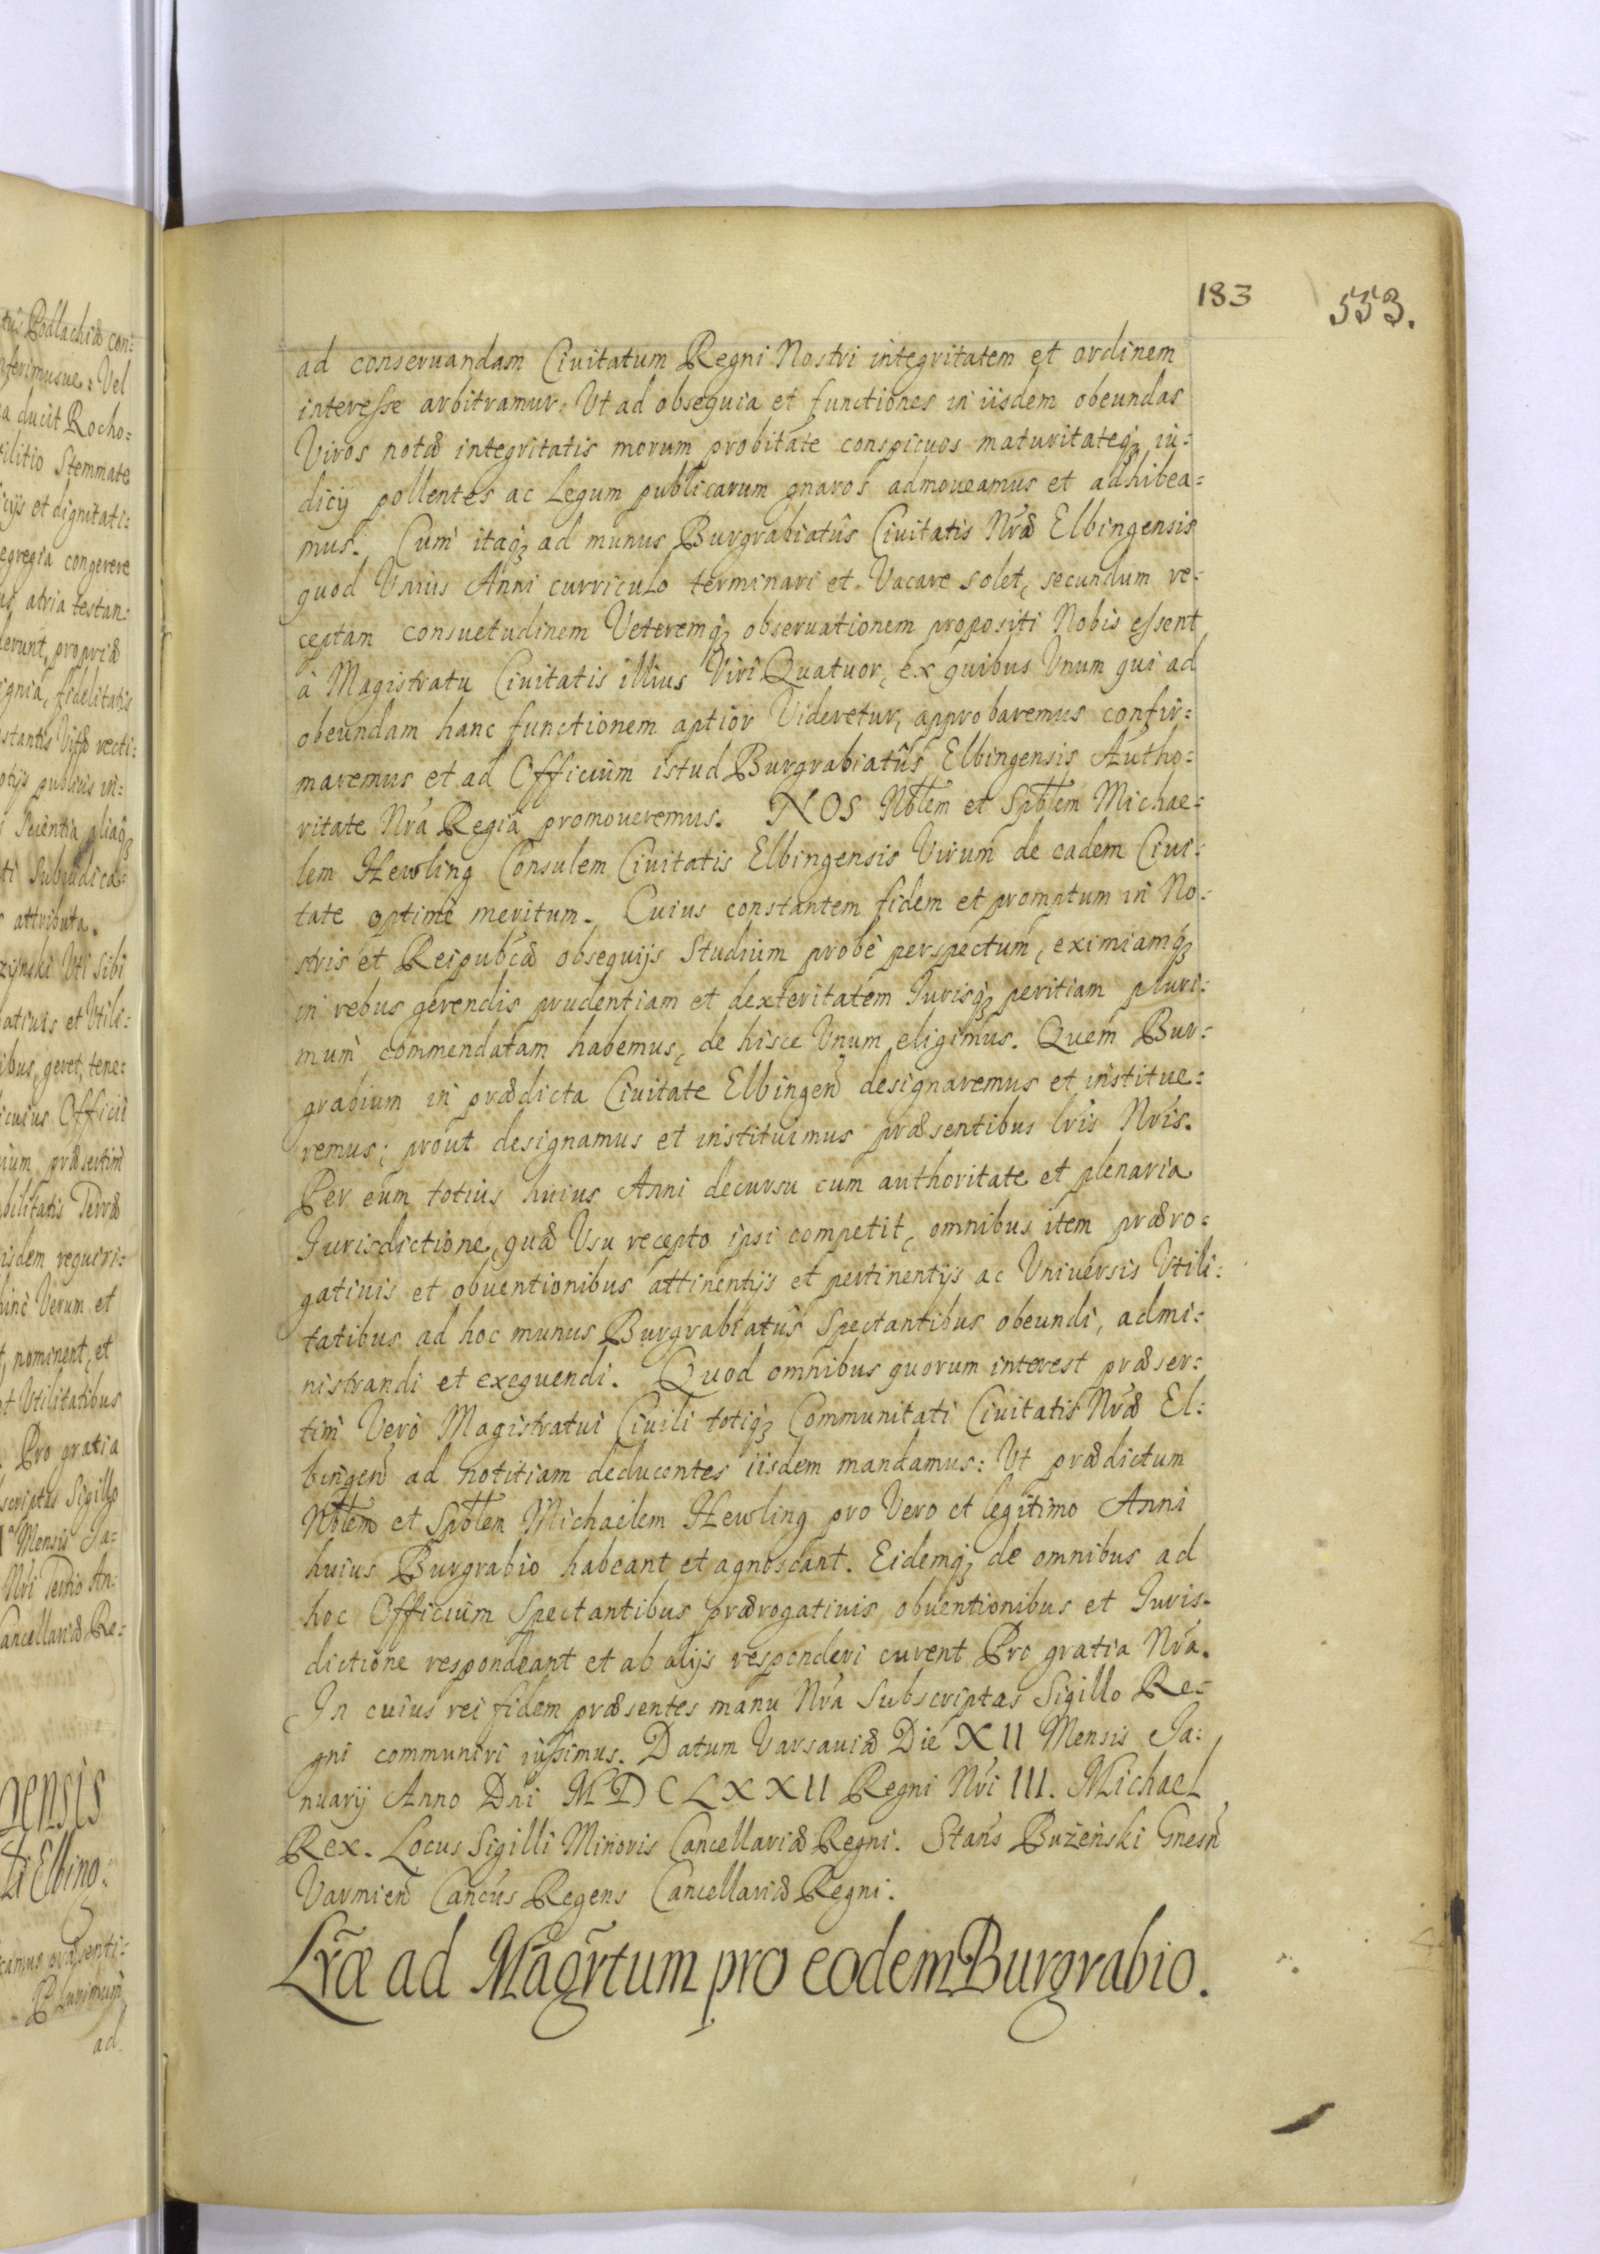 183 553.
ad conseruandam Ciuitatum Regni Nostri integritatem et ordinem
interesse arbitramur: Vt ad obsequia et functiones in iisdem obeundas
Viros notæ integritatis morum probitate conspicuos maturitateq₃ iu:
dicij pollentes ac Legum publicarum gnaros admoueamus et adhibea:
mus. Cum itaq₃ ad munus Burgrabiatûs Ciuitatis Nræ Elbingensis
quod Vnius Anni curriculo terminari et Vacare solet, secundum re:
ceptam consuetudinem Veteremq₃ obseruationem propositi Nobis essent
à Magistratu Ciuitatis illius Viri Quatuor, ex quibus Vnum qui ad
obeundam hanc functionem aptior Videretur, approbaremus confir:
maremus et ad Officium istud Burgrabiatûs Elbingensis Autho:
ritate Nrâ Regiâ promoueremus. NOS Nobtem et Spbtem Michae:
lem Hewling Consulem Ciuitatis Elbingensis Virum de eadem Ciui:
tate optimè meritum. Cuius constantem fidem et promptum in No:
stris et Reipubcæ obsequijs Studium probè perspectum, eximiamq₃
in rebus gerendis prudentiam et dexteritatem Iurisq₃ peritiam pluri:
mum commendatam habemus, de hisce Vnum eligimus. Quem Bur:
grabium in prædicta Ciuitate Elbingen designaremus et institue:
remus; prout designamus et instituimus præsentibus lris Nris.
Per eum totius huius Anni decursu cum authoritate et plenaria
Jurisdictione, quæ Vsu recepto ipsi competit, omnibus item præro:
gatiuis et obuentionibus attinentijs et pertinentijs ac Vniuersis Vtili:
tatibus ad hoc munus Burgrabiatûs Spectantibus obeundi, admi:
nistrandi et exequendi. Quod omnibus quorum interest præser:
tim Verò Magistratui Ciuili totiq₃ Communitati Ciuitatis Nræ El:
bingen ad notitiam deducentes iisdem mandamus: Vt prædictum
Nobtem et Spbtem Michaëlem Hewling pro Vero et legitimo Anni
huius Burgrabio habeant et agnoscant. Eidemq₃ de omnibus ad
hoc Officium Spectantibus prærogatiuis, obuentionibus et Juris-
dictione respondeant et ab alijs responderi curent Pro gratia Nra.
In cuius rei fidem præsentes manu Nra Subscriptas Sigillo Re:
gni communiri iussimus. Datum Varsauiæ Die XII Mensis Ja:
nuarij Anno Dni MDCLXXII Regni Nri III. Michael
Rex. Locus Sigilli Minoris Cancellariæ Regni. Stans Bużenski Gnesn
Varmien Cancus Regens Cancellariæ Regni.
Lræ ad Magrtum pro eodem Burgrabio.